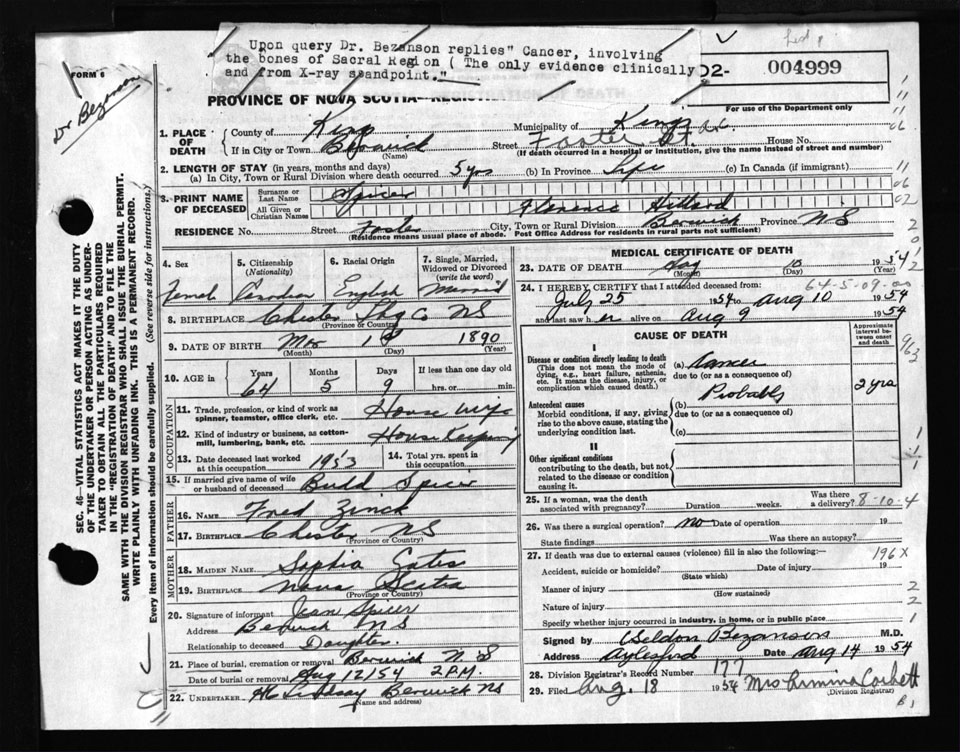 Upon query Dr. Bezanson replies" Cancer, involving
the bones of Sacral Region ( The only evidence clinically
and from X-ray standpoint."
FORM 6
Dr Bezanson
02- 004999
For use of the Department only
PROVINCE OF NOVA SCOTIA—REGISTRATION OF DEATH
1. PLACE OF DEATH
County of Kings Municipality of Kings
If in City or Town Berwick (Name) Street Foster St. House No.
(If death occurred in a hospital or institution, give the name instead of street and number)
2. LENGTH OF STAY (in years, months and days)
(a) In City, Town or Rural Division where death occurred 5 yrs (b) In Province Life (c) In Canada (if immigrant)
3. PRINT NAME OF DECEASED
Surname or Last Name Spicer
All Given or Christian Names Florence Hillard
RESIDENCE No. Street Foster City, Town or Rural Division Berwick Province NS
(Residence means usual place of abode. Post Office Address for residents in rural parts not sufficient)
4. Sex Femal
5. Citizenship (Nationality) Canadian
6. Racial Origin English
7. Single, Married, Widowed or Divorced (write the word) Married
8. BIRTHPLACE Chester NS
(Province or Country)
9. DATE OF BIRTH Mar 1 1890
(Month) (Day) (Year)
10. AGE in Years 64 Months 5 Days 9 If less than one day old hrs. or min.
OCCUPATION
11. Trade, profession, or kind of work as spinner, teamster, office clerk, etc. House wife
12. Kind of industry or business, as cotton-mill, lumbering, bank, etc. House Keeping
13. Date deceased last worked at this occupation 1953
14. Total yrs. spent in this occupation
15. If married give name of wife or husband of deceased Budd Spicer
FATHER
16. NAME Fred Zinck
17. BIRTHPLACE Chester NS
(Province or Country)
MOTHER
18. MAIDEN NAME Sophia Gates
19. BIRTHPLACE Nova Scotia
(Province or Country)
20. Signature of informant Jean Spicer
Address Berwick NS
Relationship to deceased Daughter
21. Place of burial, cremation or removal Berwick N.S
Date of burial or removal Aug 12/54 2 P.M.
22. UNDERTAKER H Lindsay Berwick NS
(Name and address)
MEDICAL CERTIFICATE OF DEATH
23. DATE OF DEATH Aug 10 1954
(Month) (Day) (Year)
24. I HEREBY CERTIFY that I attended deceased from:
64-5-09-00
July 25 1954 to Aug 10 1954
and last saw her alive on Aug 9 1954
CAUSE OF DEATH
Approximate interval between onset and death
I
Disease or condition directly leading to death
(This does not mean the mode of dying, e.g., heart failure, asthenia, etc. It means the disease, injury, or complication which caused death.)
(a) Cancer
due to (or as a consequence of)
Probably 2 yrs
Antecedent causes
Morbid conditions, if any, giving rise to the above cause, stating the underlying condition last.
(b)
due to (or as a consequence of)
(c)
II
Other significant conditions
contributing to the death, but not related to the disease or condition causing it.
25. If a woman, was the death associated with pregnancy? Duration weeks. Was there a delivery? 8-10-4
26. Was there a surgical operation? no Date of operation 19
State findings Was there an autopsy?
27. If death was due to external causes (violence) fill in also the following:— 196X
Accident, suicide or homicide? Date of injury 19
(State which)
Manner of injury
(How sustained)
Nature of injury
Specify whether injury occurred in industry, in home, or in public place
Signed by Weldon Bezanson M.D.
Address Aylesford Date Aug 14 1954
28. Division Registrar's Record Number 177
29. Filed Aug. 18 1954 Mrs Corbett
(Division Registrar)
SEC. 46—VITAL STATISTICS ACT MAKES IT THE DUTY
OF THE UNDERTAKER OR PERSON ACTING AS UNDER-
TAKER TO OBTAIN ALL THE PARTICULARS REQUIRED
IN THE "REGISTRATION OF DEATH" AND TO FILE THE
SAME WITH THE DIVISION REGISTRAR WHO SHALL ISSUE THE BURIAL PERMIT.
WRITE PLAINLY WITH UNFADING INK. THIS IS A PERMANENT RECORD.
Every item of information should be carefully supplied. (See reverse side for instructions.)